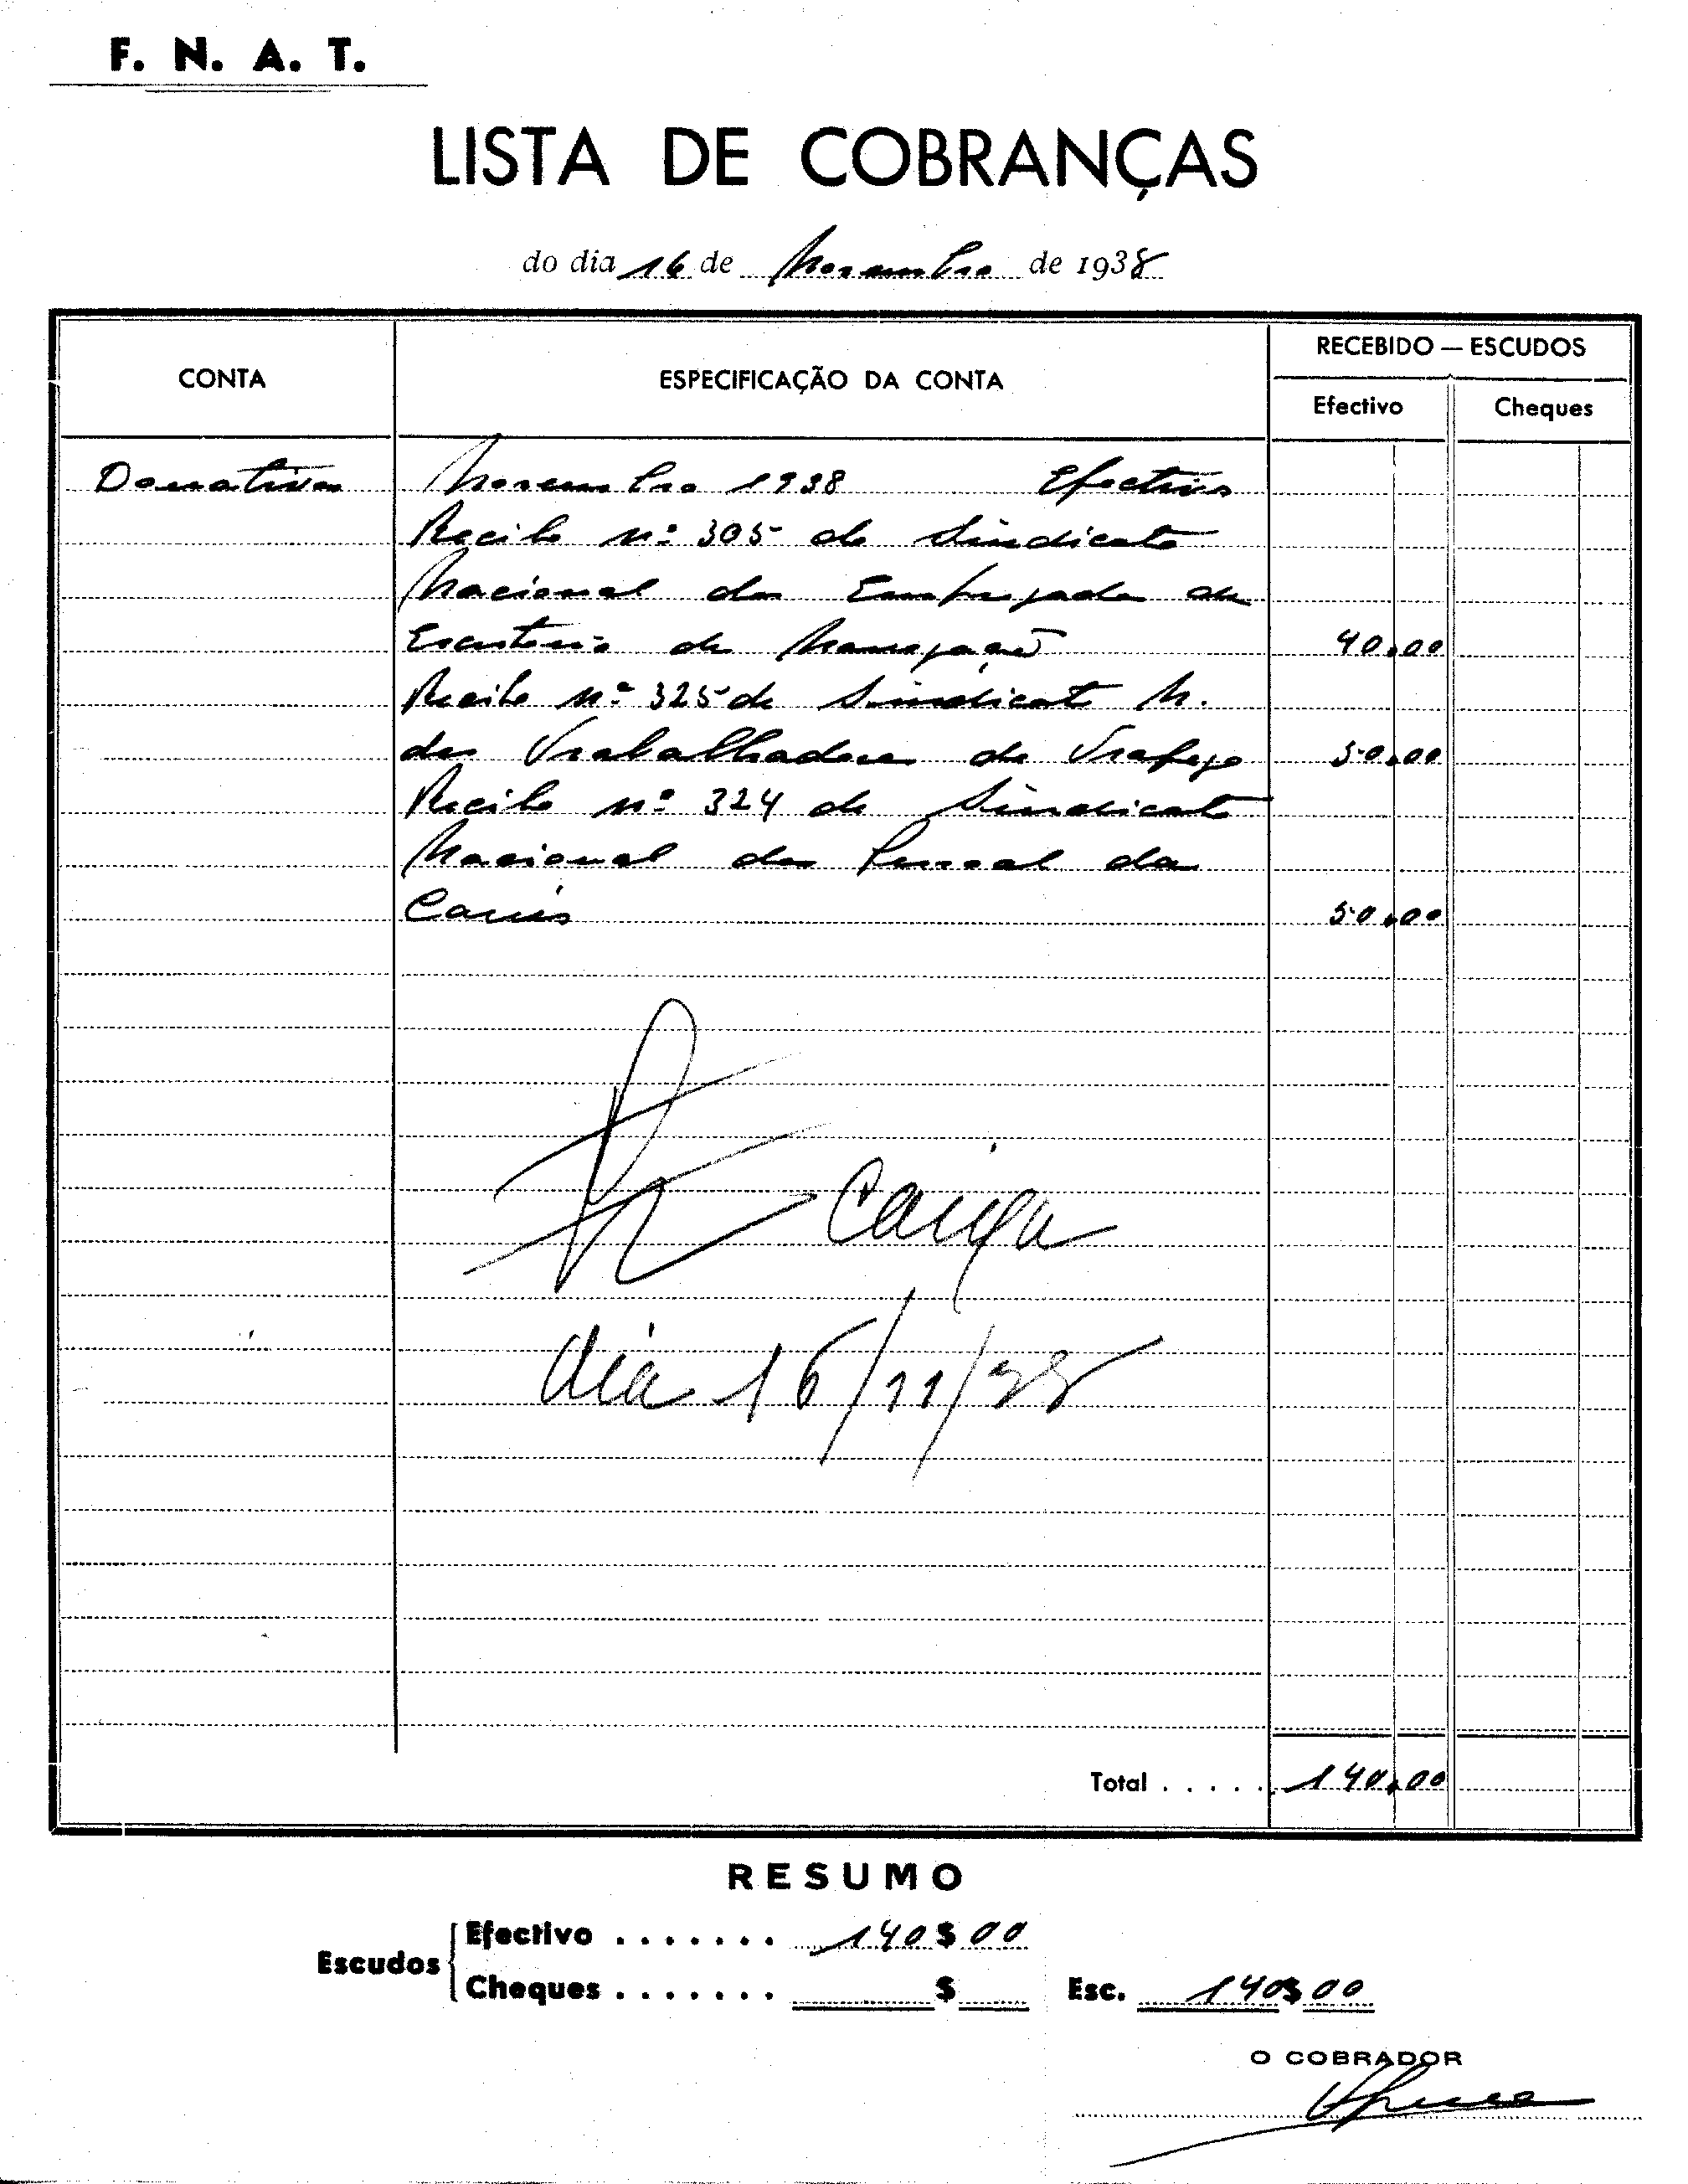 F. N. A. T.
LISTA DE COBRANÇAS
do dia 16 de Novembro de 1938
CONTA
ESPECIFICAÇÃO DA CONTA
RECEBIDO — ESCUDOS
Efectivo
Cheques
Donativos Novembro 1938 Efectivo
Recibo nº 305 do Sindicato
Nacional dos Empregados de
Escritorio de Navegação 40,00
Recibo nº 325 do Sindicato N.
dos Trabalhadores do Trafego 50,00
Recibo nº 324 do Sindicato
Nacional do Pessoal da
Carris 50,00
Caixa
dia 16/11/38
Total ..... 140,00
RESUMO
Escudos
Efectivo ....... 140$00
Cheques ....... $
Esc. 140$00
O COBRADOR